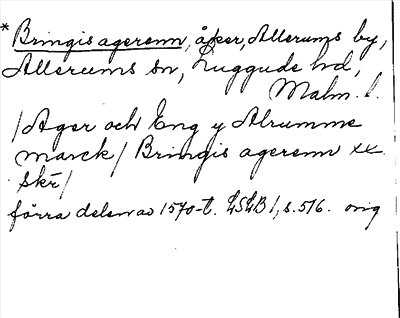 * Bringis agerenn, åker, Allerums by,
Allerums sn, Luggude hd,
Malm. l.
/Ager och Eng y Alrumme
marck/ Bringis agerenn xx
skr/
förra delen av 1570-t. LSLB 1, s. 516. orig